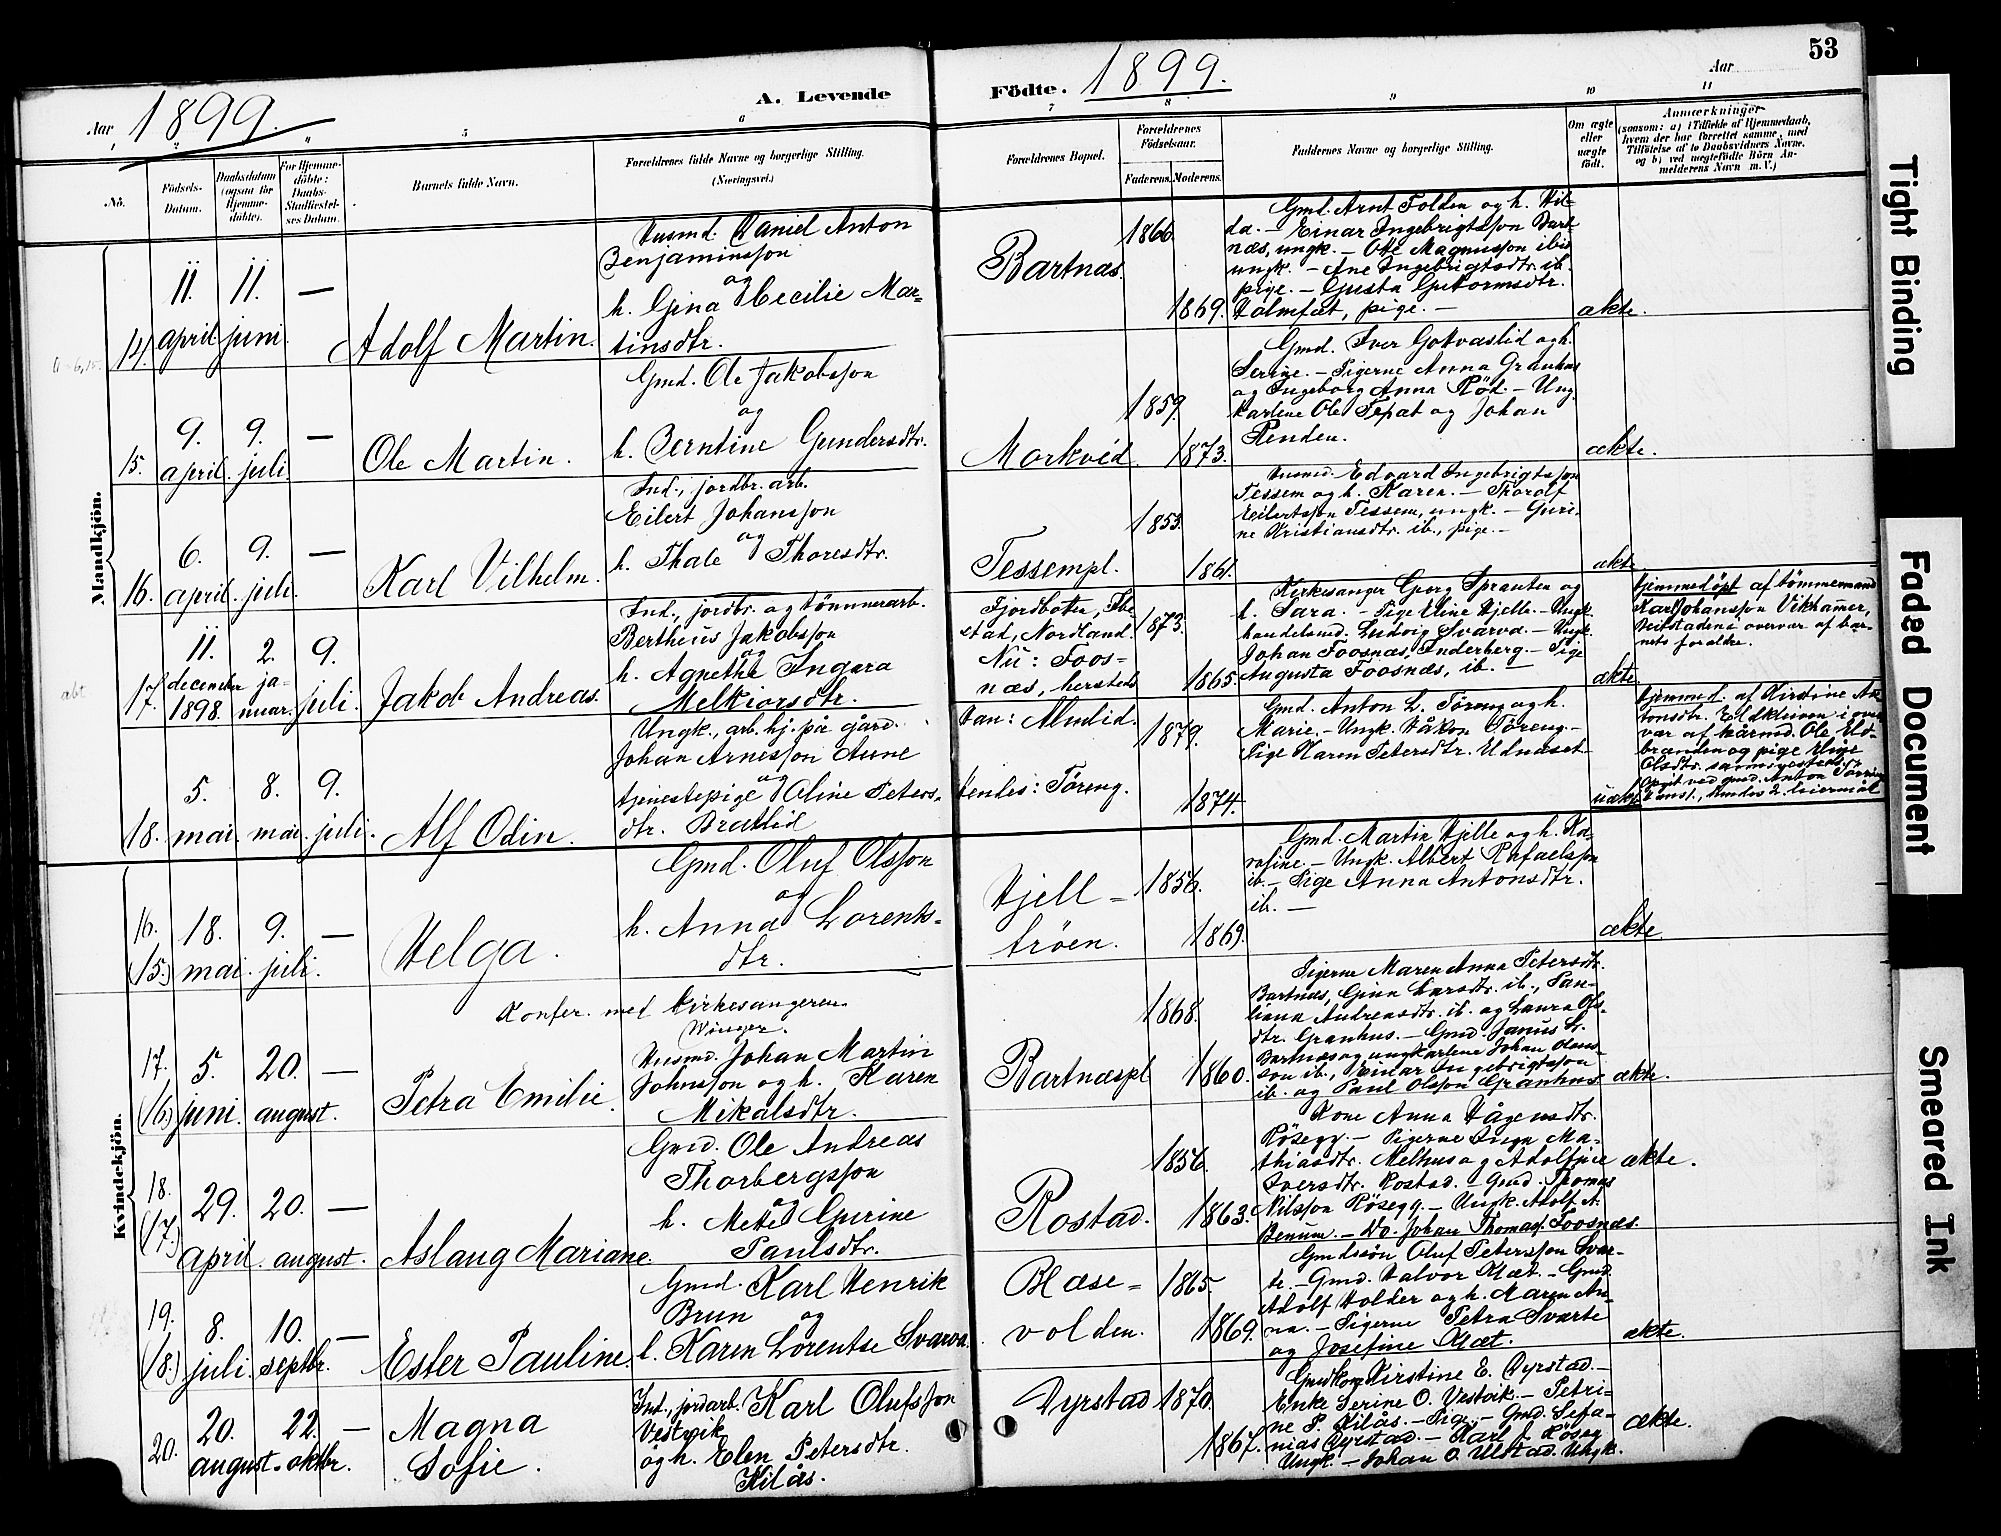 53
Aar, 1899.
A. Levende
Födte. 1899.
Aar
5
6
7
8
9
10
11
No.
Födsels-Datum.
Daabsdatum (ogsaa for Hjemme-döbte).
For Hjemme-döbte: Daabs-Stadfæstelses Datum.
Barnets fulde Navn.
Forældrenes fulde Navne og borgerlige Stilling. (Næringsvei.)
Forældrenes Bopæl.
Forældrenes Födselsaar.
Faderens. Moderens.
Faddernes Navne og borgerlige Stilling.
Om ægte eller uægte födt.
Anmærkninger (saasom: a) i Tilfælde af Hjemmedaab, hvem der har forrettet samme, med Tilföielse af to Daabsvidners Navne. og b) ved uægtefödte Börn Anmelderens Navn m. V.)
Mandkjön.
14. 11. april 11. juni. — Adolf Martin.
Husmd. Daniel Anton
Benjaminsson
og
h. Gina Cecilie Mar=
tinsdtr.
Bartnæs.
1866
1869.
Gmd. Arnt Folden og h. Hil-
da. — Einar Ingebrigtsson Bart-
næs, ungk. — Ole Magnusson ibid
ungk. — Ane Ingebrigtsdtr. ib.
pige. — Gusta Guttormsdtr.
Holmfæt, pige. —
ækte.
15. 9. april 9. juli. — Ole Martin.
Gmd. Ole Jakobsson
og
h. Berntine Gundersdtr.
Morkved.
1859.
1873.
Gmd. Iver Gotvaslid og h.
Serine. — Pigerne Anna Granhus
og Ingeborg Anna Röd. — Ung
karlene Ole Tepat og Johan
Renden.
ækte.
16. 6. april. 9. juli. — Karl Vilhelm.
Ind., jordbr. arb.
Eilert Johansson
og
h. Thale Thoresdtr.
Tessempl.
1853.
1861.
Husmd. Edvard Ingebrigtsson
Tessem og h. Karen. — Thorolf
Eilertsson Tessem, ungk. — Guri-
ne Kristiansdtr. ib., pige. —
ækte
17. 11. december 1898. 2. januar. 9. juli. Jakob Andreas.
Ind., jordbr. og tömmerarb.
Bertheus Jakobsson
og
h. Agnethe Ingera
Melkiorsdtr.
Fjordboten, Ibe
stad, Nordland.
Nu: Foos=
næs, hersteds
1873.
1865.
Kirkesanger Georg Sprauten og
h. Sara. — Pige Eline Hjelle. — Ungk.
handelsmd. Ludvig Svarva. — Ungk.
Johan Foosnæs, Inderberg. — Pige
Augusta Foosnæs, ib. —
ækte.
Hjemmedöpt af tömmermand
Karl Johansson Vikhamer,
i overvær af bar-
nets forældre.
18. 5. mai 8. mai. 9. juli. Alf Odin.
Ungk., arb. hj. på gård.
Johan Arnesson Aune
og
tjenestepige Oline Peters-
dtr. Bratlid
Han: Almlid.
Hendes: Töreng.
1879.
1874.
Gmd. Anton L. Töreng og h.
Marie. — Ungk. Håkon Töreng. —
Pige Karen Petersdtr. Udnæset
uækte
Hjemmed. af Kirstine An-
tonsdtr. i over
vær af kårmd. Ole Eld-
branden og pige Eline
Olsdtr. sammesteds.
Opgit ved gmd. Anton Töring
Hans 1., hendes 2. leiermål
Kvindekjön.
16. (15.) 18. mai. 9. juli. — Helga.
Gmd. Oluf Olsson
og
h. Anna Lorents-
dtr.
Hjell=
tröen.
1856.
1869.
Gmd. Martin Hjelle og h. Ka-
rofine. — Ungk. Albert Rafaelsson
ib. — Pige Anna Antonsdtr.
ib. —
ækte
Konfer. med kirkesangeren
17. (16.) 5. juni. 20. august. — Petra Emilie.
Husmd. Johan Martin
Johnsson og h. Karen
Mikalsdtr.
Bartnæspl
1868.
1860.
Pigerne Maren Anna Petersdtr.
Bartnæs, Gina Larsdtr. ib., Pau-
liana Andreasdtr. ib. og Laura Ols-
dtr. Granhus. — Gmd. Janus L.
Bartnæs og ungkarlene Johan Olaus-
son ib., Einar Ingebrigtsson
ib. og Paul Olsson Granhus
ækte.
18. (17.) 29. april. 20. august. — Aslaug Mariane.
Gmd. Ole Andreas
Thorbergsson
og
h. Mette Gurine
Paulsdtr.
Rostad.
1856.
1863.
Kone Anna Hågensdtr.
Rösegg. — Pigerne Inga Ma-
thiasdtr. Melhus og Adolfine
Iversdtr. Rostad. — Gmd. Thomas
Nilsson Rösegg. — Ungk. Adolf A.
Benum. — Do. Johan Thomas. Foosnæs.
ækte.
19. (18.) 8. juli. 10. septbr. — Ester Pauline.
Gmd. Karl Henrik
Brun og
h. Karen Lorentse Svarva.
Blæse=
volden.
1865.
1869.
Gmdssön Oluf Petersson Svar-
te. — Gmd. Halvor Klæt. — Gmd.
Adolf Holder og h. Maren An-
na. — Pigerne Petra Svarte
og Josefine Klæt.
ækte.
20. 20. august. 22. oktbr. — Magna
Sofie.
Ind., jordarb. Karl Olufsson
Vestvik
og h. Elen Petersdtr.
Kilås.
Dyrstad
1870.
1867.
Gmdkone Kirstine E. Dyrstad. —
Enke Serine O. Vestvik. — Petri-
ne P. Kilås. — Pige. — Gmd. Sefa-
nias Dyrstad. — Karl J. Röseg
Ungk. — Johan O. Ulstad. Ungk.
ækte.
Tight Binding
Faded Document
Smeared Ink